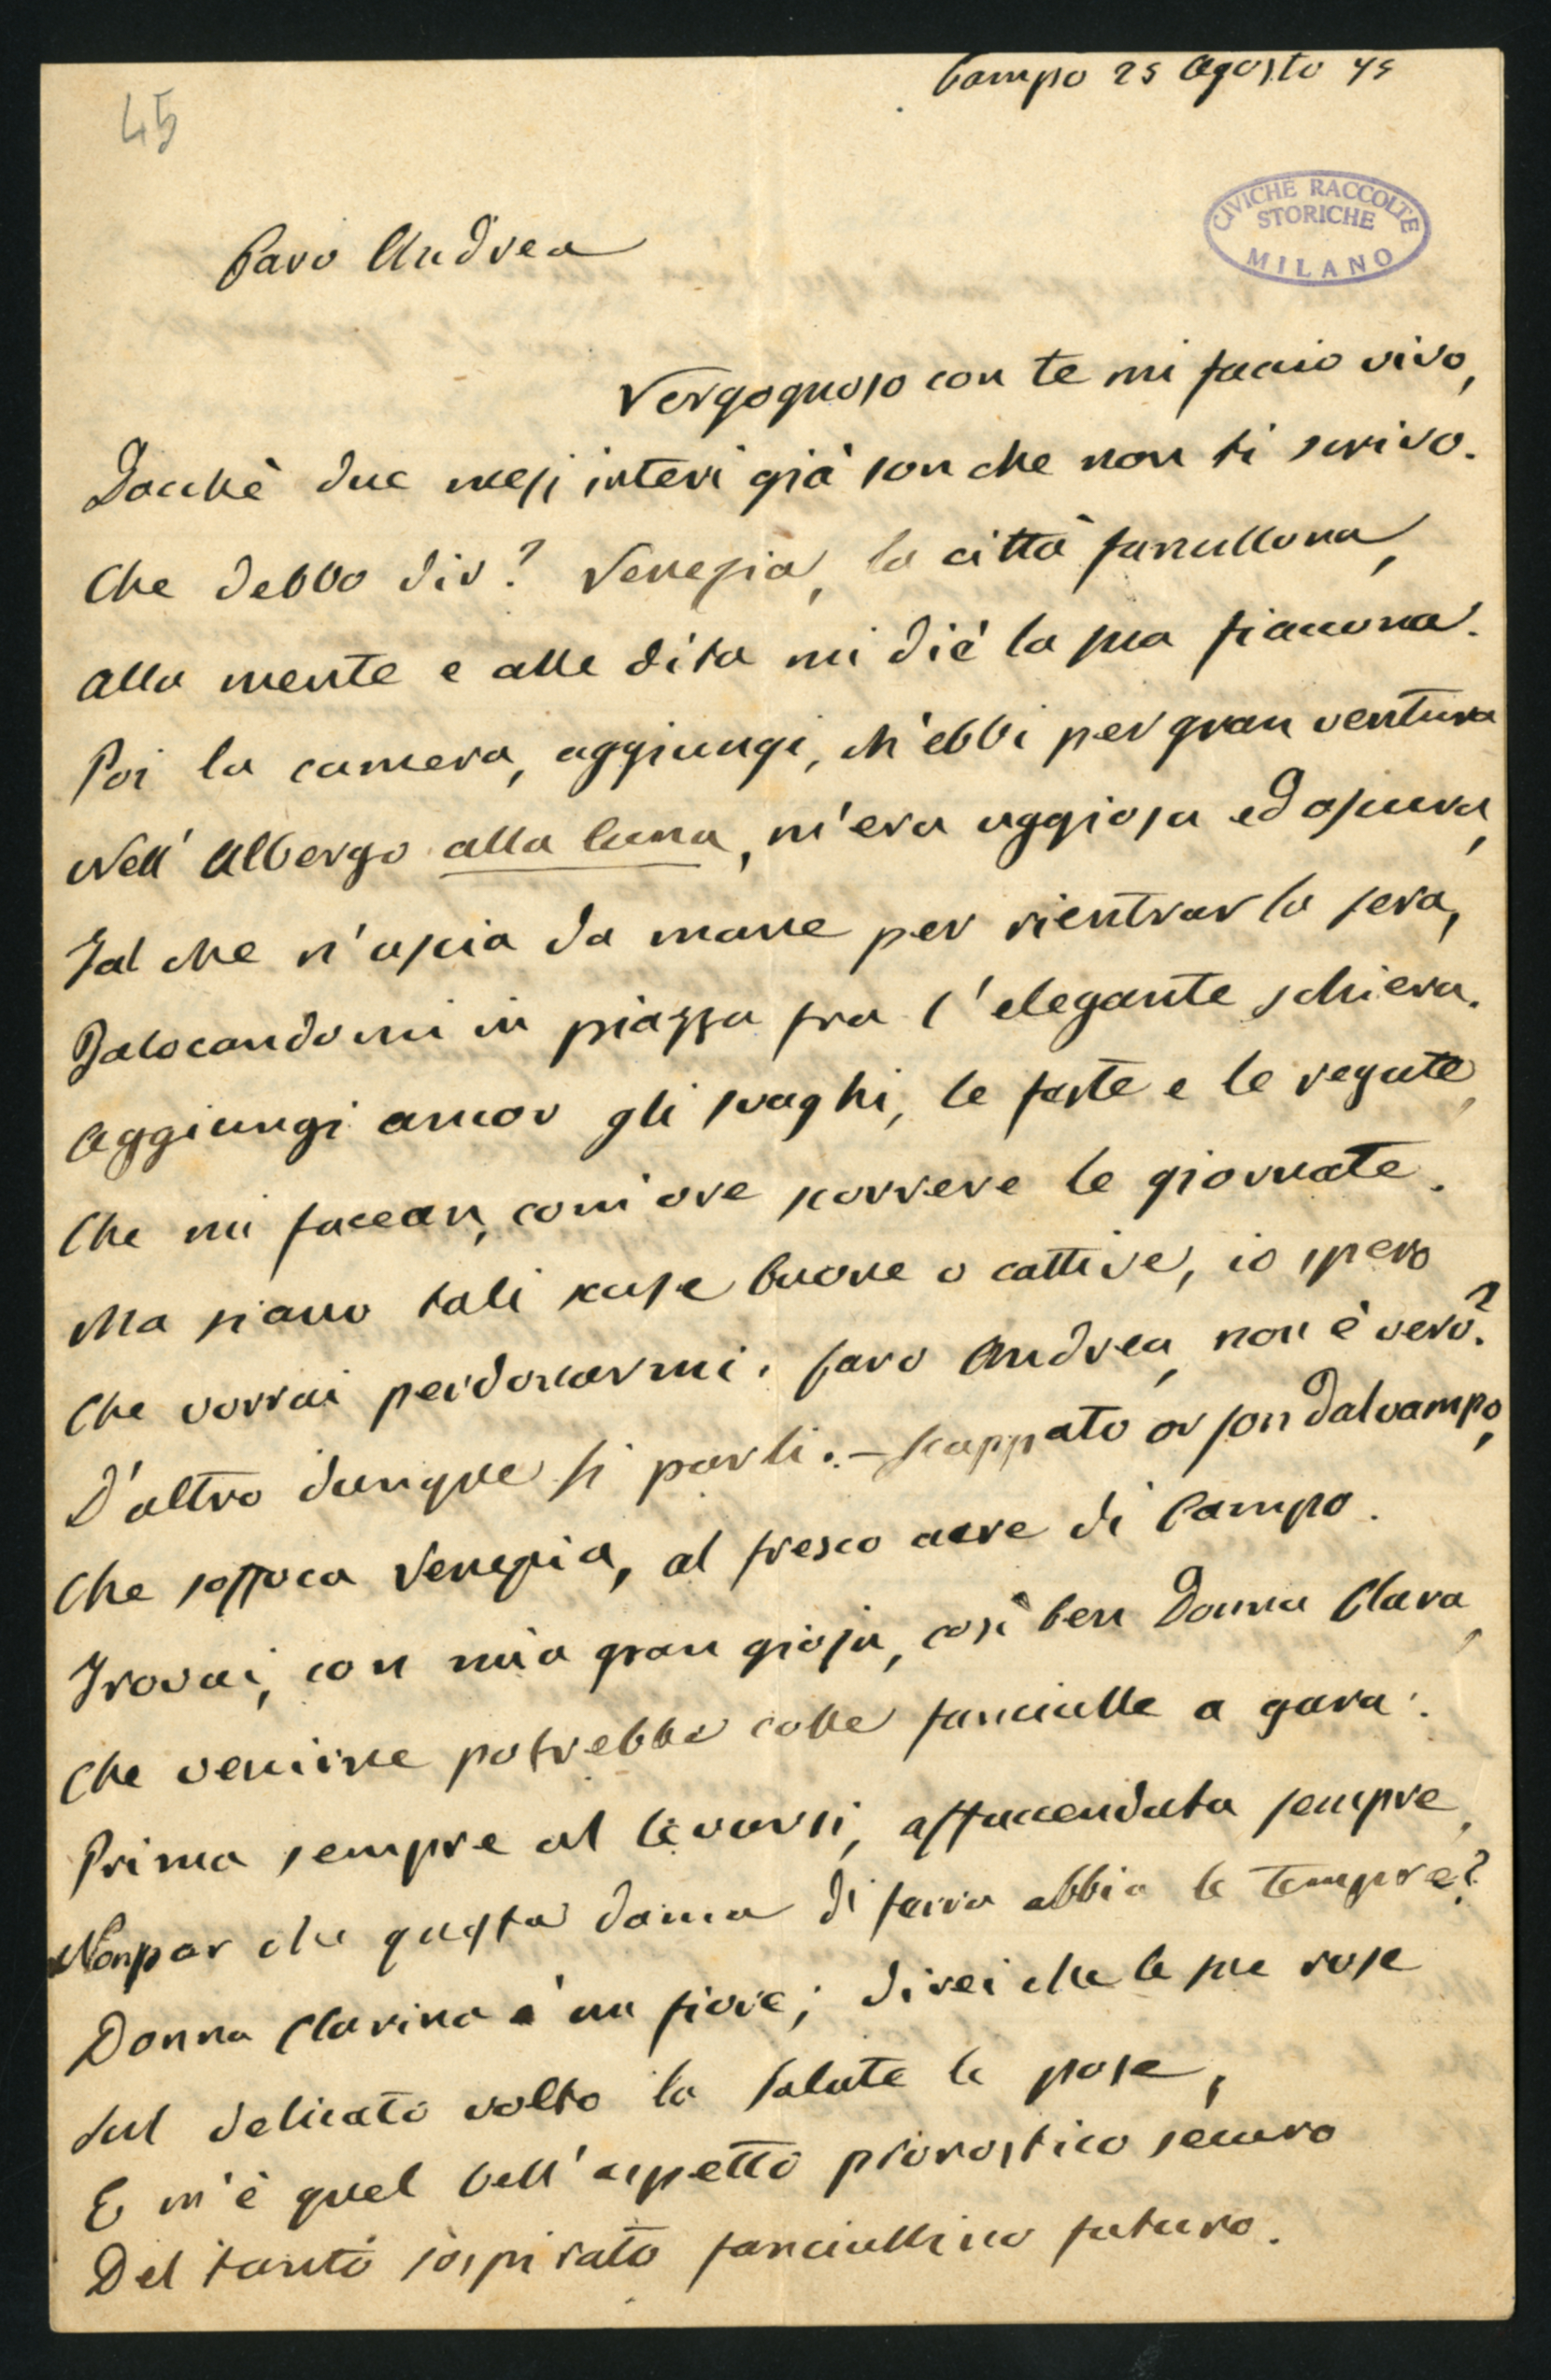 Campo 25 Agosto 75
45
CIVICHE RACCOLTE
STORICHE
MILANO
Caro Andrea
Vergognoso con te mi faccio vivo,
Dacchè due mesi interi già son che non ti scrivo.
Che debbo dir? Venezia, la città fanullona,
Alla mente e alle dita mi diè la sua fiaccona.
Poi la camera, aggiungi, ch'ebbi per gran ventura
Nell' Albergo alla luna, m'era uggiosa ed oscura,
Tal che n'uscia da mane per rientrar la sera,
Balocandomi in piazza fra l'elegante schiera.
Aggiungi ancor gli svaghi, le feste e le regate,
Che mi facean, com'ore scorrere le giornate.
Ma siano tali scuse buone o cattive, io spero
Che vorrai perdonarmi. Caro Andrea, non è vero?
D'altro dunque si parli. – Scappato or son dal vampo,
Che soffoca Venezia, al fresco aere di Campo.
Trovai, con mia gran gioja, così ben Donna Clara,
Che venirne potrebbe colle fanciulle a gara:
Prima sempre al levarsi, affaccendata sempre,
Non par che questa dama di ferro abbia le tempre?
Donna Clarina è un fiore; direi che le sue rose
Sul delicato volto la salute le pose,
E m'è quel bell'aspetto pronostico securo
Del tanto sospirato fanciullino futuro.